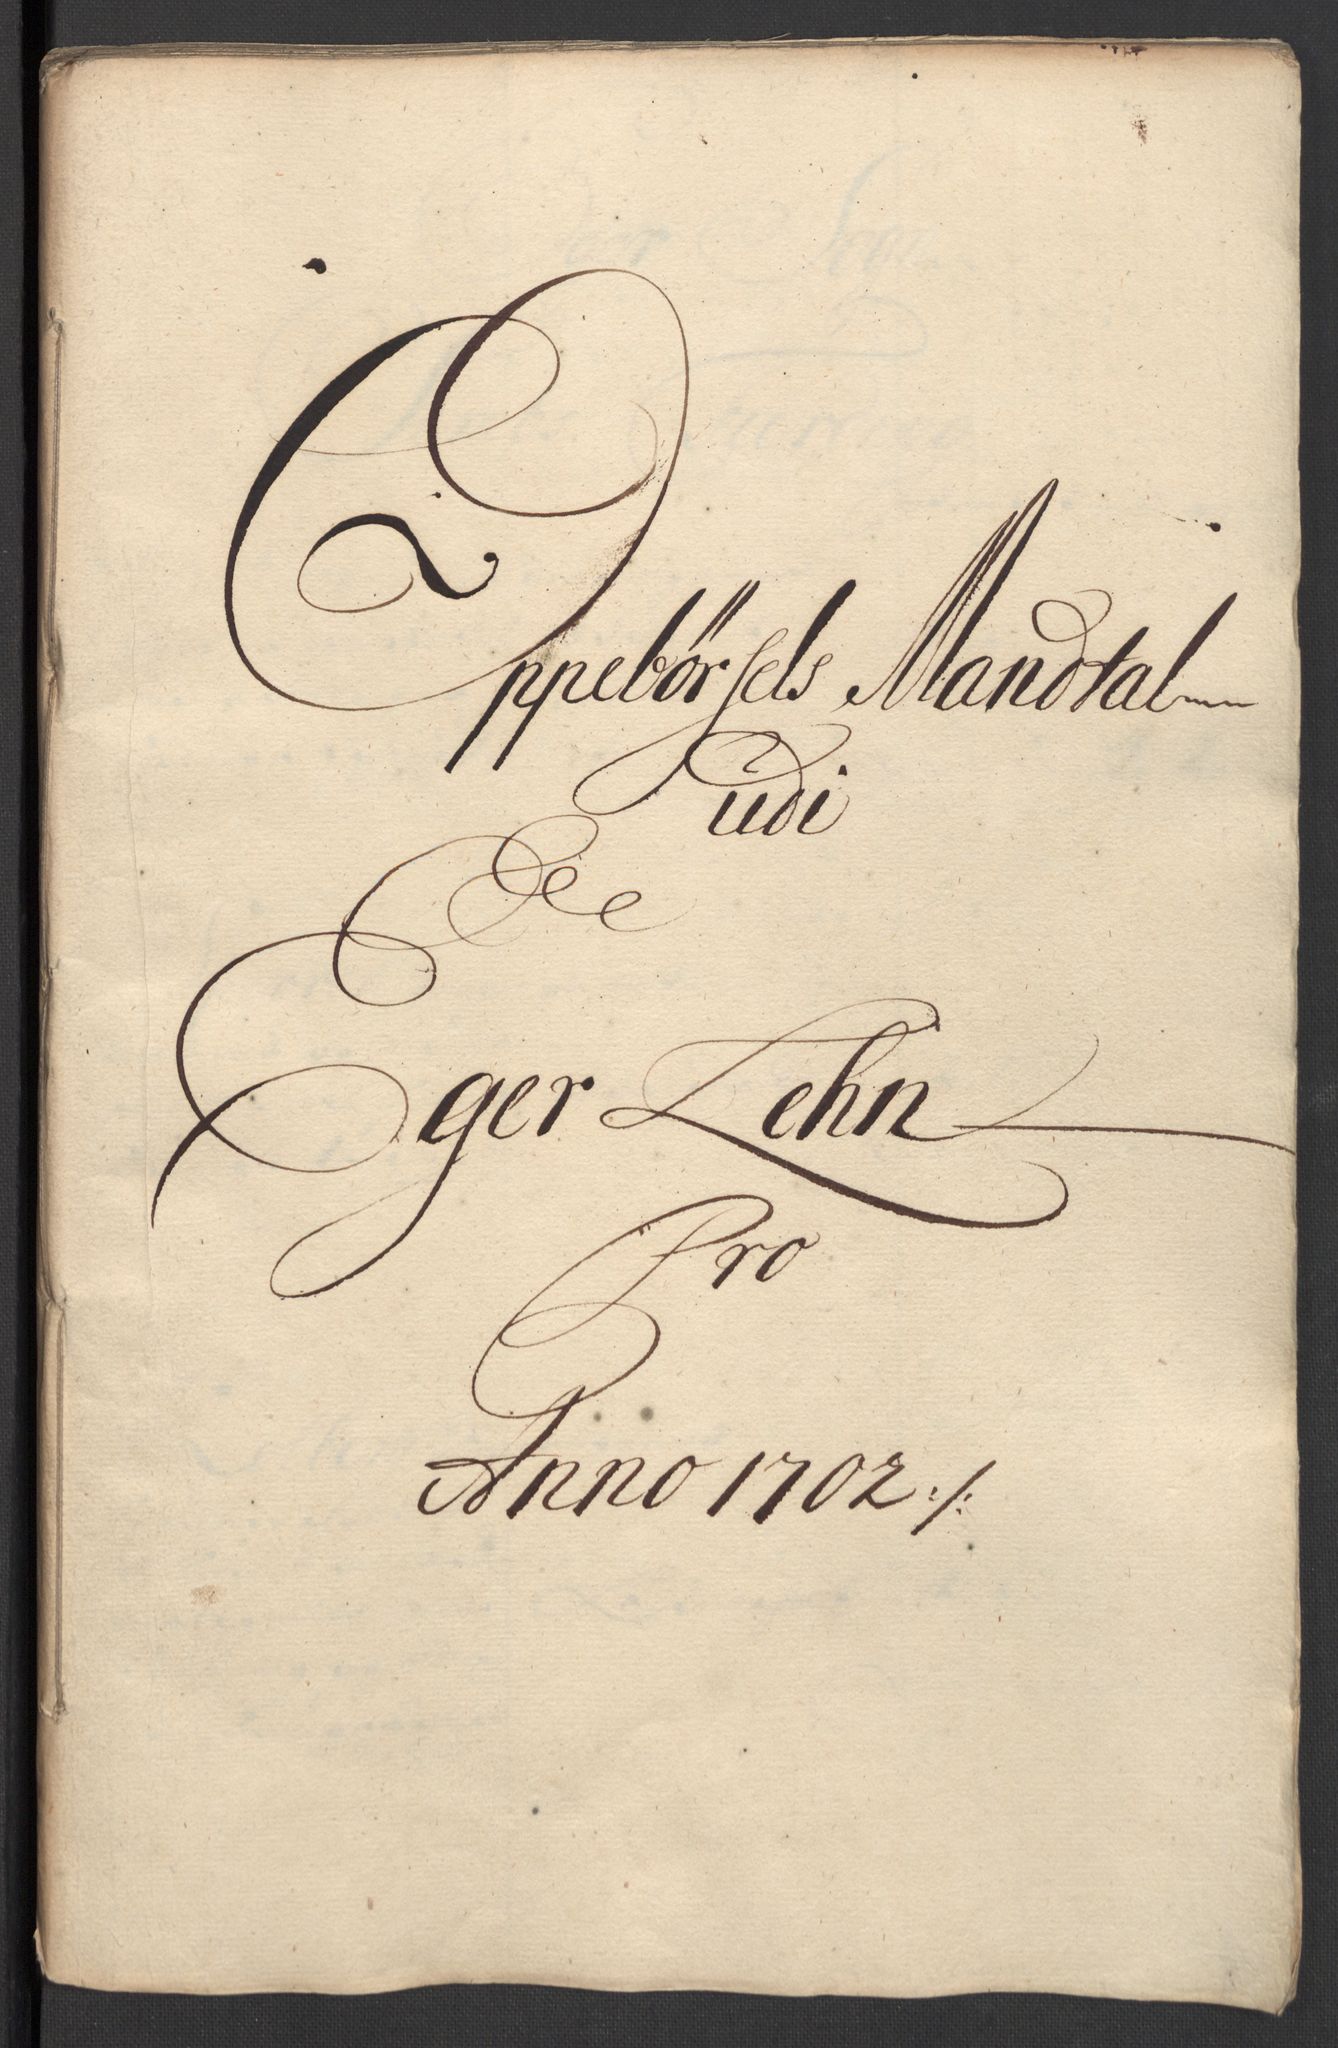 Oppebörsels Mandtal
udi
Eger Lehn
Pro
Anno 1702 ./.